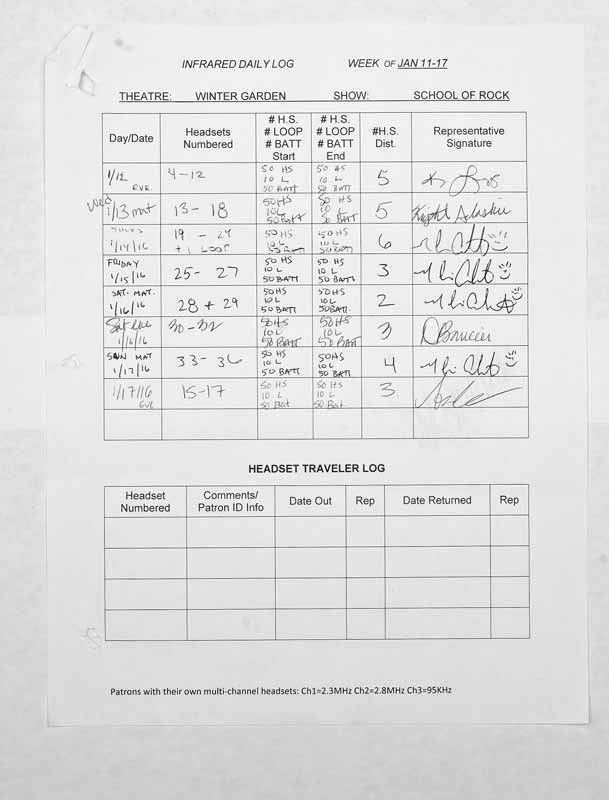 INFRARED DAILY LOG WEEK OF JAN 11-17
THEATRE: WINTER GARDEN SHOW: SCHOOL OF ROCK
Day/Date
Headsets Numbered
# H.S. # LOOP # BATT Start
# H.S. # LOOP # BATT End
#H.S. Dist.
Representative Signature
1/12 EVE 4-12 50 HS 10 L 50 BATT 50 HS 10 L 50 BATT 5
Wed 1/13 mat 13-18 50HS 10L 50 BATT 50 HS 10 L 50 BATT 5
1/14/16 19 - 24 + 1 LOOP 50 HS 10 L 50 BATT 50 HS 10 L 50 BATT 6
FRIDAY 1/15/16 25- 27 50 HS 10 L 50 BATT 50 HS 10 L 50 BATT 3
SAT. MAT. 1/16/16 28 + 29 50HS 10L 50 BATT 50 HS 10 L 50 BATT. 2
Sat eve 1/16/16 30-32 50HS 10L 50 BATT 50HS 10 L 50 BATT 3
SUN MAT 1/17/16 33-36 50 HS 10 L 50 BATT 50HS 10 L 50 BATT 4
1/17/16 EVE 15-17 50 HS 10 L 50 Bat 50 HS 10 L 50 Bat 3
HEADSET TRAVELER LOG
Headset Numbered
Comments/ Patron ID Info
Date Out
Rep
Date Returned
Rep
Patrons with their own multi-channel headsets: Ch1=2.3MHz Ch2=2.8MHz Ch3=95KHz